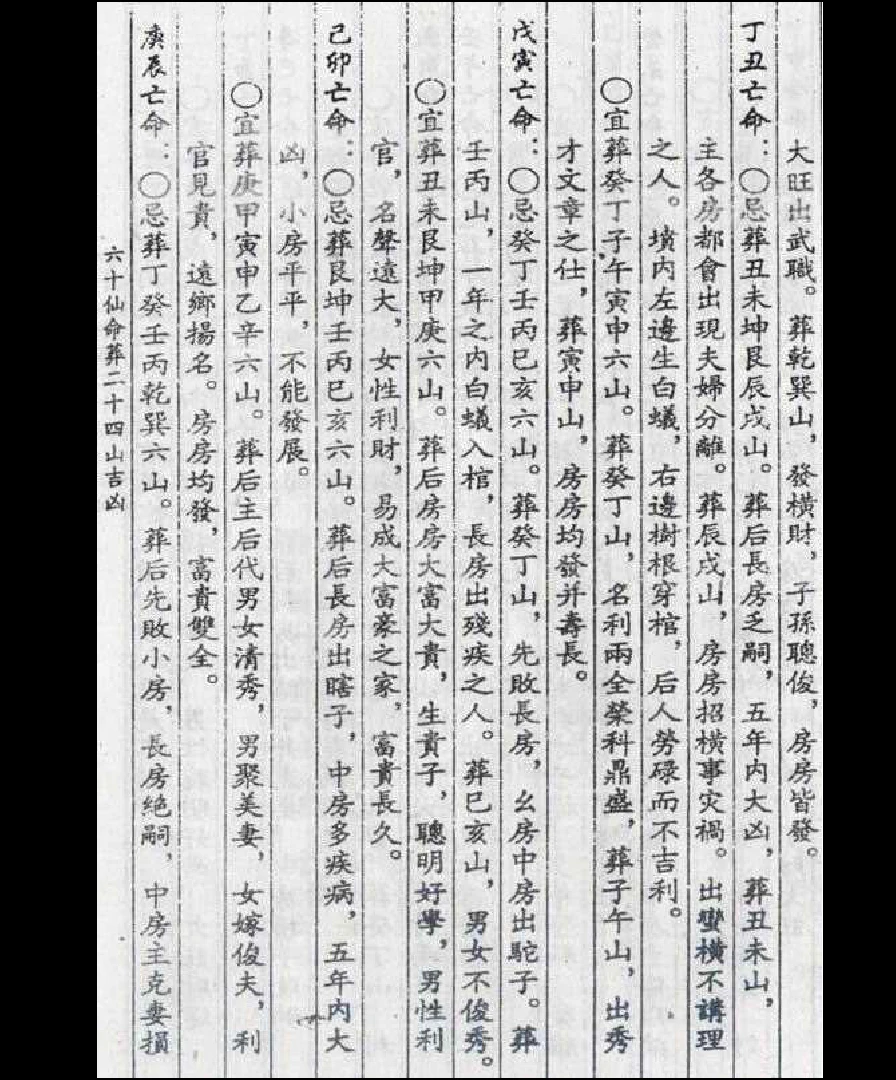 大旺出武職。葬乾巽山，發橫財，子孫聰俊，房房皆發。
丁丑亡命：〇忌葬丑未坤艮辰戌山。葬后長房乏嗣，五年内大凶，葬丑未山，
主各房都會出現夫婦分離。葬辰戌山，房房招橫事灾禍。出蠻橫不講理
之人。墳内左邊生白蟻，右邊樹根穿棺，后人勞碌而不吉利。
〇宜葬癸丁子午寅申六山。葬癸丁山，名利兩全榮科鼎盛，葬子午山，出秀
才文章之仕，葬寅申山，房房均發并壽長。
戊寅亡命：〇忌癸丁壬丙巳亥六山。葬癸丁山，先敗長房，幺房中房出駝子。葬
壬丙山，一年之内白蟻入棺，長房出殘疾之人。葬巳亥山，男女不俊秀。
〇宜葬丑未艮坤甲庚六山。葬后房房大富大貴，生貴子，聰明好學，男性利
官，名聲遠大，女性利財，易成大富豪之家，富貴長久。
己卯亡命：〇忌葬艮坤壬丙巳亥六山。葬后長房出瞎子，中房多疾病，五年内大
凶，小房平平，不能發展。
〇宜葬庚甲寅申乙辛六山。葬后主后代男女清秀，男聚美妻，女嫁俊夫，利
官見貴，遠鄉揚名。房房均發，富貴雙全。
庚辰亡命：〇忌葬丁癸壬丙乾巽六山。葬后先敗小房，長房絶嗣，中房主克妻損
六十仙命葬二十四山吉凶